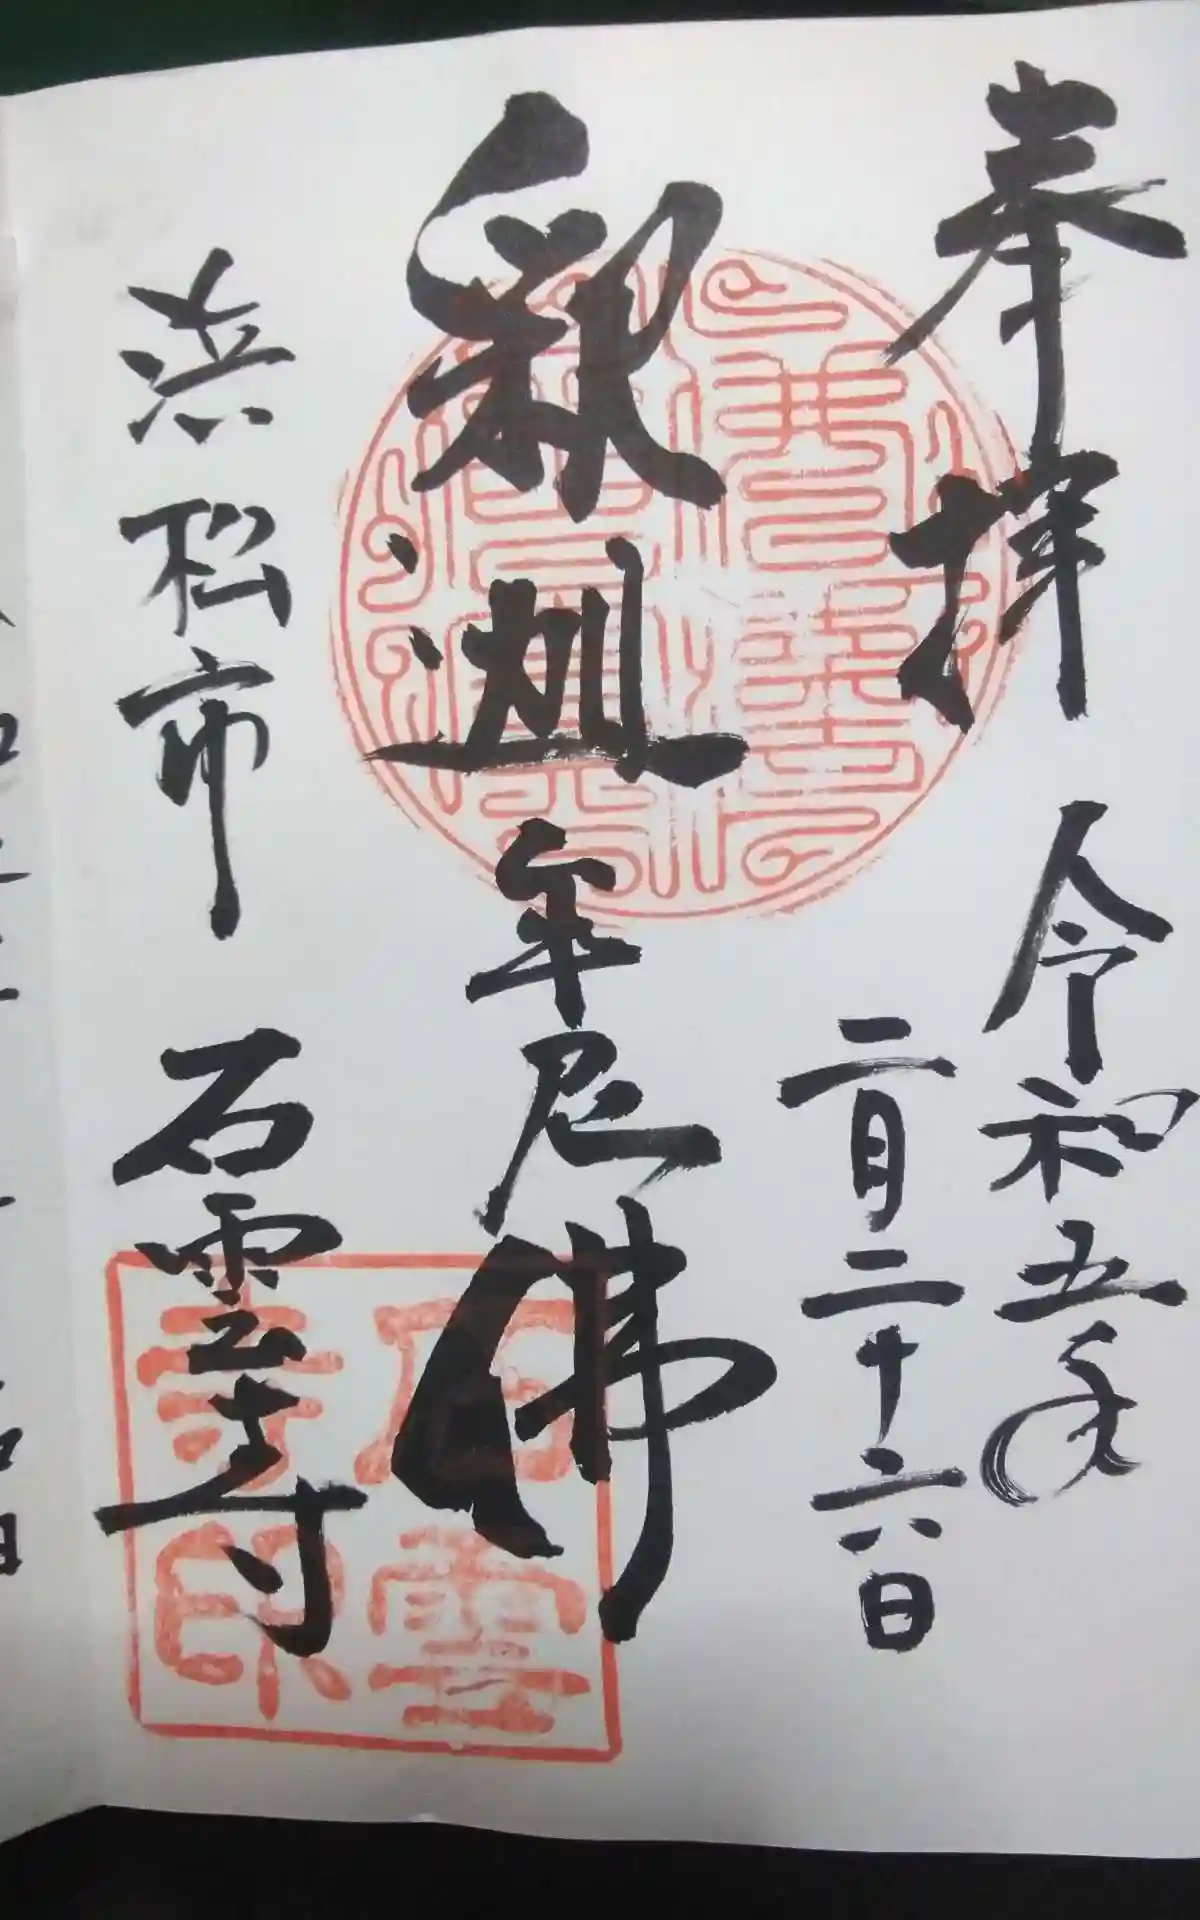 奉拝 令和五年
二月二十六日
釈迦牟尼佛
浜松市 石雲寺
石雲寺印